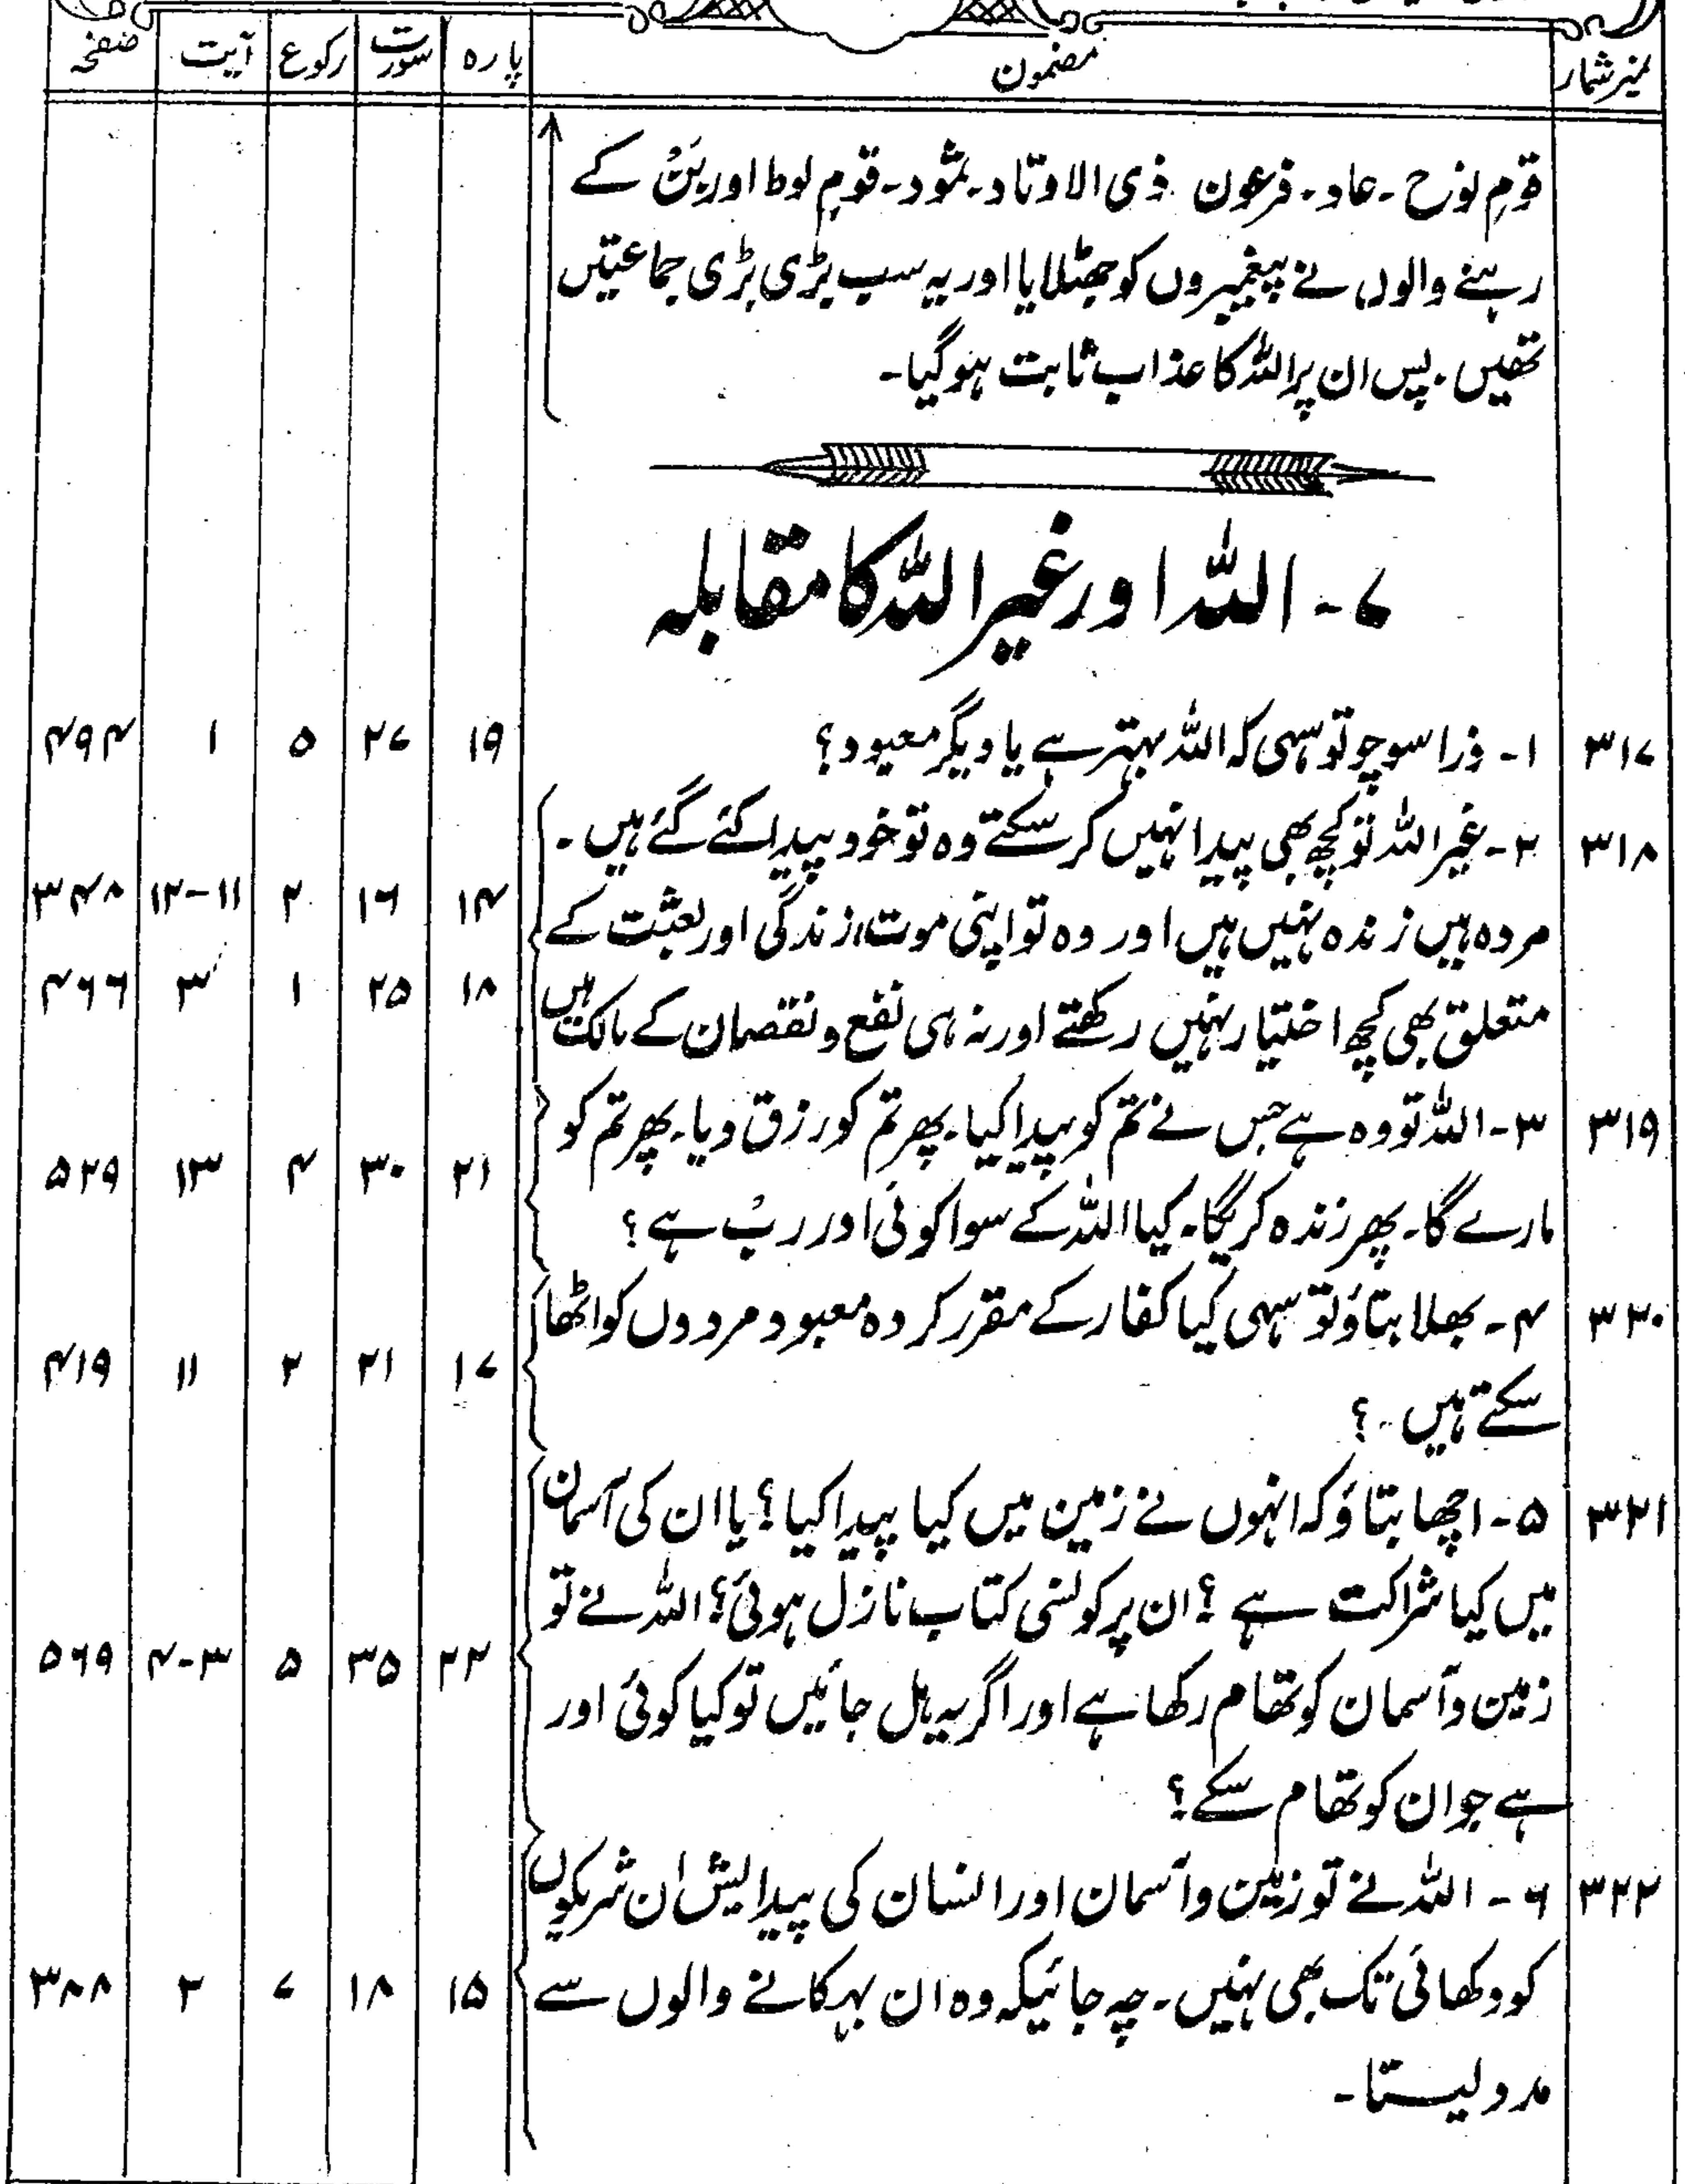 نمبر شمار مضمون پارہ سورت رکوع آیت صفحہ
قومِ نوح ۔ عاد ۔ فرعون ذی الاوتاد ۔ ثمود ۔ قومِ لوط اور بَنْ کے
رہنے والوں نے پیغمبروں کو جھٹلایا اور یہ سب بڑی بڑی جماعتیں
تھیں ۔ پس ان پر اللہ کا عذاب ثابت ہوگیا ۔
۷ ۔ اللہ اور غیر اللہ کا مقابلہ
۳۱۷ ۱ ۔ ذرا سوچو تو سہی کہ اللہ بہتر ہے یا دیگر معبود؟ ۱۹ ۲۷ ۵ ۱ ۴۹۴
۳۱۸ ۲ ۔ غیر اللہ تو کچھ بھی پیدا نہیں کر سکتے وہ تو خود پیدا کئے گئے ہیں ۔
مردہ ہیں زندہ نہیں ہیں اور وہ تو اپنی موت، زندگی اور بعثت کے ۱۴ ۱۶ ۲ ۱۱-۱۲ ۳۴۸
متعلق بھی کچھ اختیار نہیں رکھتے اور نہ ہی نفع و نقصان کے مالک ہیں ۱۸ ۲۵ ۱ ۳ ۴۶۶
۳۱۹ ۳ ۔ اللہ تو وہ ہے جس نے تم کو پیدا کیا ۔ پھر تم کو رزق دیا ۔ پھر تم کو
مارے گا ۔ پھر زندہ کریگا ۔ کیا اللہ کے سوا کوئی اور رب ہے؟ ۲۱ ۳۰ ۴ ۱۳ ۵۲۹
۳۲۰ ۴ ۔ بھلا بتاؤ تو سہی کیا کفار کے مقرر کردہ معبود مردوں کو اٹھا
سکتے ہیں ۔؟ ۱۷ ۲۱ ۲ ۱۱ ۴۱۹
۳۲۱ ۵ ۔ اچھا بتاؤ کہ انہوں نے زمین میں کیا پیدا کیا؟ یا ان کی آسمان
میں کیا شراکت ہے؟ ان پر کونسی کتاب نازل ہوئی؟ اللہ نے تو
زمین و آسمان کو تھام رکھا ہے اور اگر یہ ہل جائیں تو کیا کوئی اور ۲۲ ۳۵ ۵ ۳-۴ ۵۶۹
ہے جو ان کو تھام سکے؟
۳۲۲ ۶ ۔ اللہ نے تو زمین و آسمان اور انسان کی پیدایش ان شریکوں
کو دکھائی تک بھی نہیں ۔ چہ جائیکہ وہ ان بہکانے والوں سے ۱۵ ۱۸ ۷ ۲ ۳۸۸
مدد لیتا ۔